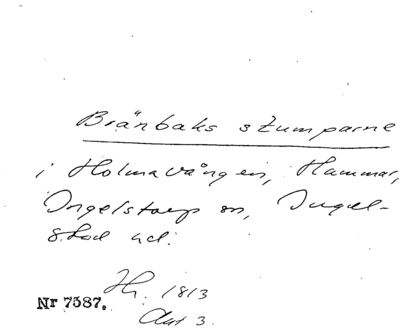 Bränbaks stumparne
i Holmavången, Hammar,
Ingelstorp sn, Ingel-
stad hd.
Hr. 1813
Akt 3.
Nr 7587.